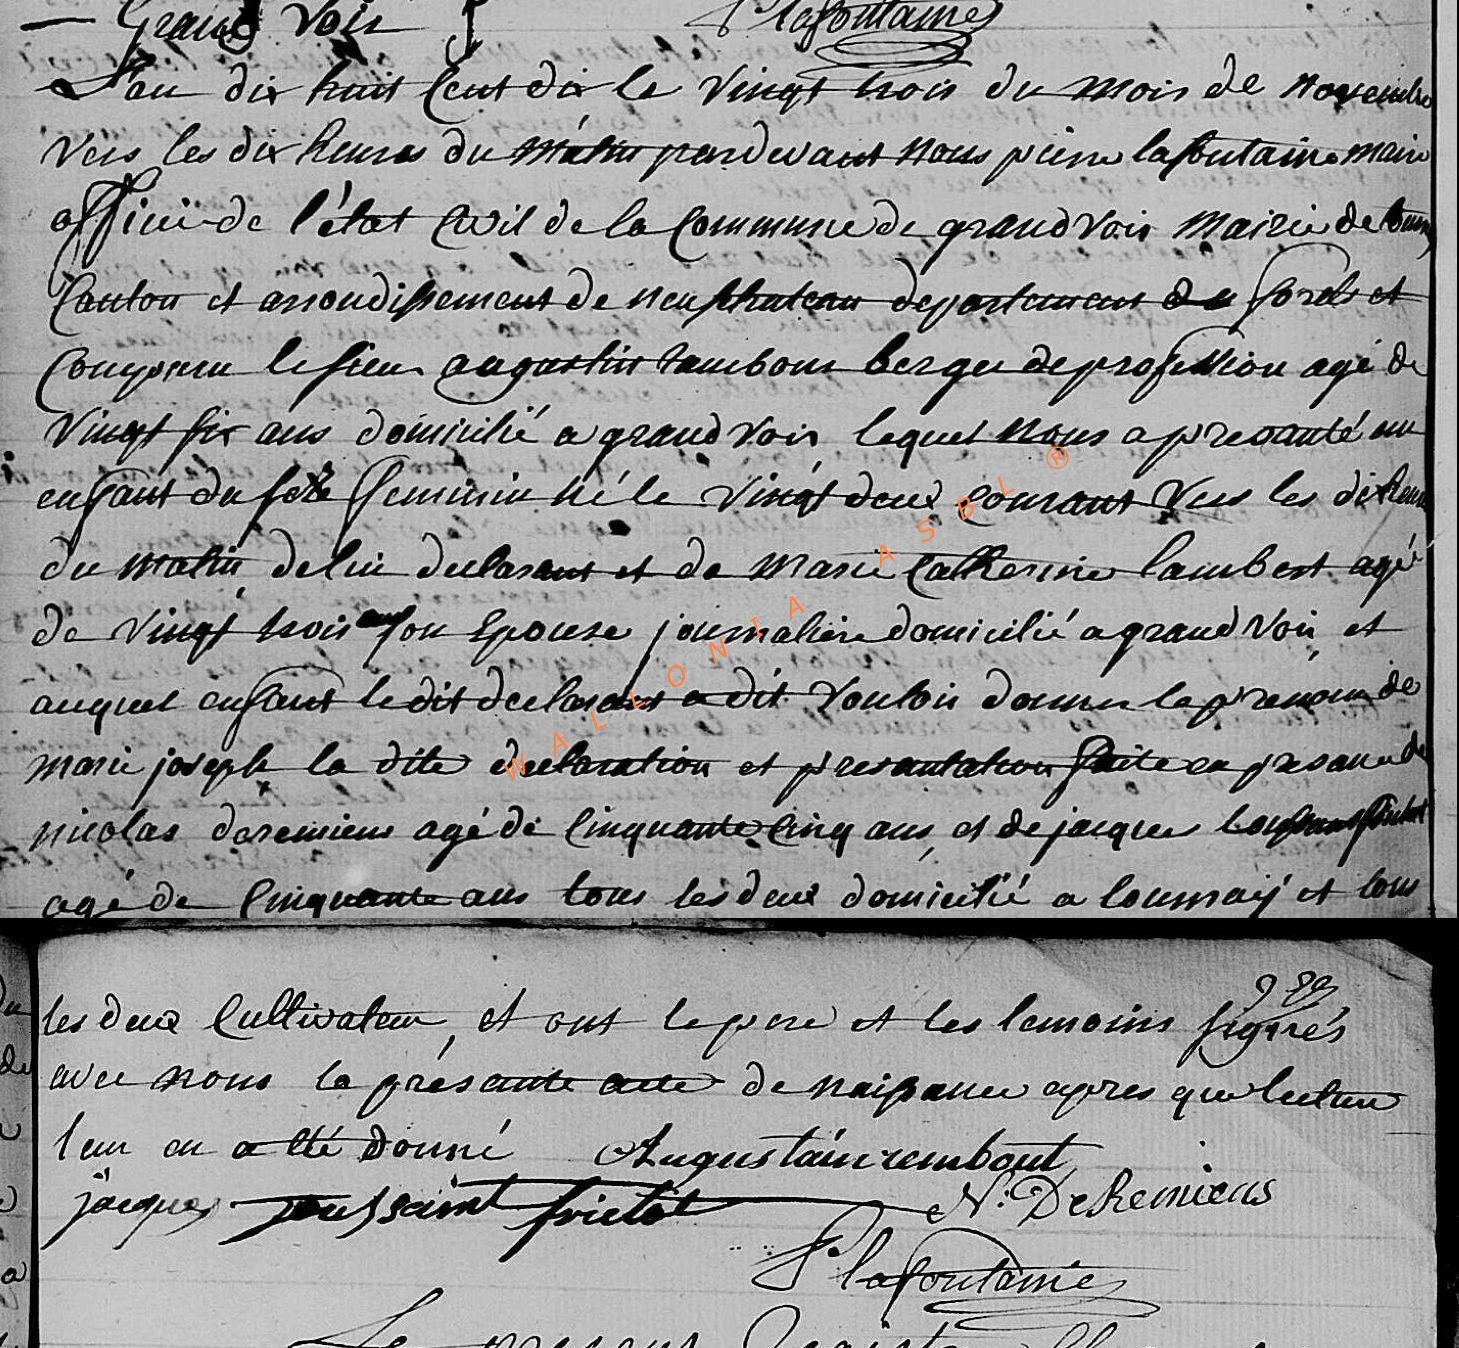 Grand Voir P lafontaine
L'an dix huit Cent dix le vingt trois du mois de novembre
vers les dix heures du matin pardevant nous pierre lafontaine maire
officié de l'état Civil de la Commune de grandvoir Mairie de
Canton et arrondissement de neufchateau departement de forets et
Comparu le sieur augustin rambout berger de profession agé de
vingt six ans domicilié a grandvoir lequel nous a presanté un
enfant du sexe feminin né le vingt deux Courant vers les dix heures
du matin de lui declarant et de marie Catherine lambert agé
de vingt trois ans son Epouse journaliere domicilié a grandvoir et
auquel enfant le dit declarant a dit vouloir donner le prénom de
marie joseph la dite declaration et presantation faite en presance de
nicolas deremiens agé de Cinquante Cinq ans, et de jacque toussaint frictot
agé de Cinquante ans tous les deux domicilié a tournay et tous
les deux Cultivateur, et ont le pere et les temoins signés
avec nous le présante acte de naissance apres que lecture
leur en a été donné Augustain rembout
jacques toussaint frictot N: DeRemiens
P lafontaine
WALLONIA ASBL ®